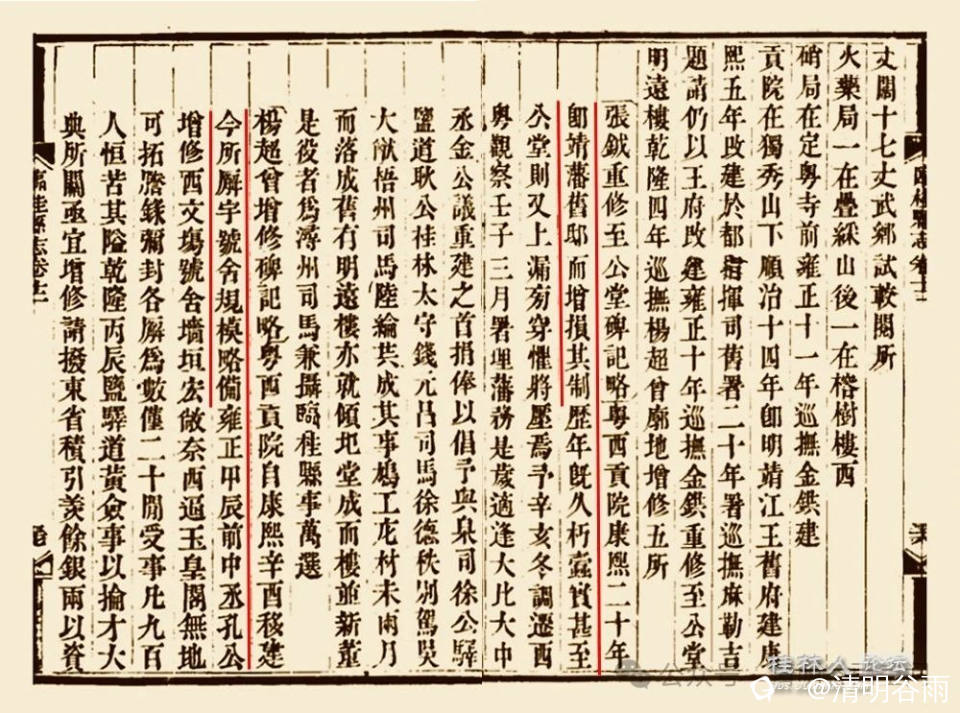 丈闊十七丈武鄉試較閱所
火藥局一在疊綵山後一在榕樹樓西
硝局在定粵寺前雍正十一年巡撫金鉷建
貢院在獨秀山下順治十四年卽明靖江王舊府建康
熙五年改建於都指揮司舊署二十年署巡撫麻勒吉
題請仍以王府改建雍正十年巡撫金鉷重修至公堂
明遠樓乾隆四年巡撫楊超曾廓地增修五所
張鉞重修至公堂碑記略粵西貢院康熙二十年
卽靖藩舊邸而增損其制歷年旣久朽蠧實甚至
公堂則又上漏旁穿懼將壓焉予辛亥冬調遷西
粵觀察壬子三月署理藩務是歲適逢大比大中
丞金公議重建之首捐俸以倡予與臬司徐公驛
鹽道耿公桂林太守錢元昌司馬徐德秩別駕吳
大猷梧州司馬陸綸共成其事鳩工庀材未兩月
而落成舊有明遠樓亦就傾圯堂成而樓並新董
是役者爲潯州司馬兼攝臨桂縣事萬選
楊超曾增修碑記略粵西貢院自康熙辛酉移建
今所廨宇號舍規模略備雍正甲辰前中丞孔公
增修西文塲號舍墻垣宏敞奈西逼玉皇閣無地
可拓謄錄彌封各廨爲數僅二十閒受事凡九百
人恒苦其隘乾隆丙辰鹽驛道黃僉事以掄才大
典所關亟宜增修請撥東省積引羨餘銀兩以資
臨桂縣志卷十二
臨桂縣志卷十二
公众号
桂林人论坛
@清明谷雨